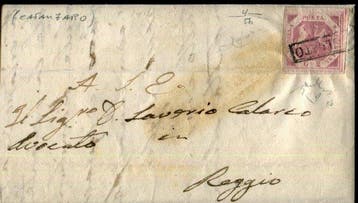 Catanzaro
4/56
POSTA
A S. E.
Il Sig.no D. Saverio Calarco
Avvocato in
Reggio